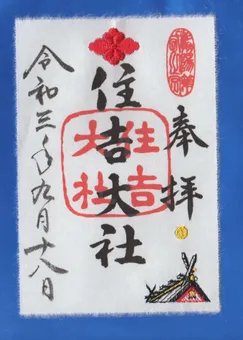 奉拝
住吉大社
住吉大社
令和三年九月十八日